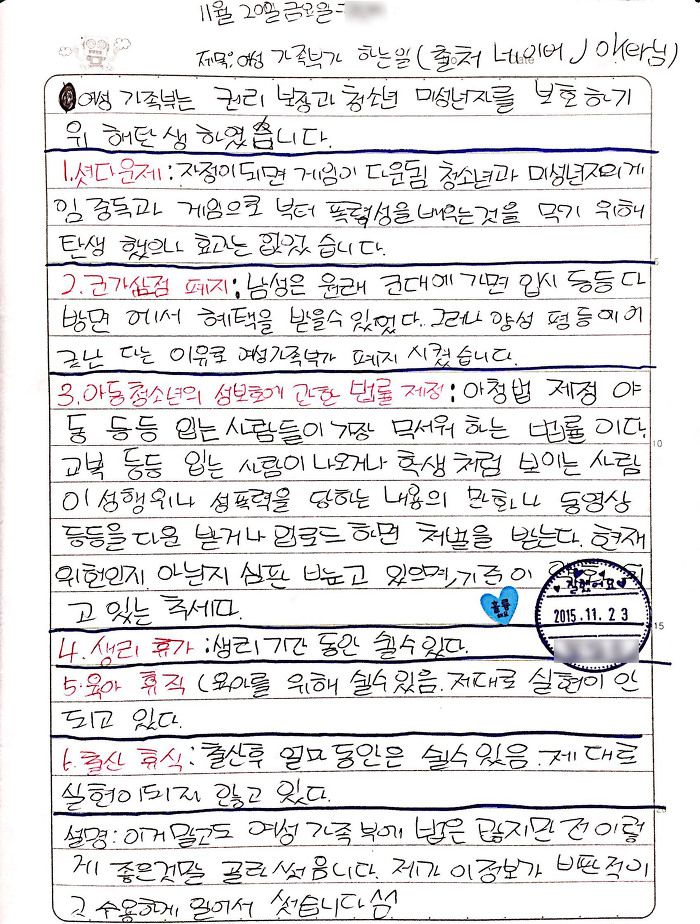 11월 20일 금요일
제목: 여성 가족부가 하는일 (출처 네이버 / 애라님)
여성 가족부는 권리 보장과 청소년 미성년자를 보호하기
위 해 탄생 하였습니다.
1.셧다운제: 자정이되면 게임이 다운됨 청소년과 미성년자의게
임 중독과 게임으로 부터 폭력성을배우는것을 막기 위해
탄생 했으나 효과는 없었 습니다.
2.군가산점 폐지: 남성은 원래 군대에 가면 입시 등등 다
방면 에서 혜택을 받을수 있었다. 그러나 양성 평등에 어
긋난 다는 이유로 여성가족부가 폐지 시켰습니다.
3.아동청소년의 성보호에 관한 법률 제정: 아청법 제정 아
동 등등 입는 사람들이 가장 무서워 하는 법률 이다.
교복 등등 입는 사람이 나오거나 학생 처럼 보이는 사람
이 성행위나 성폭력을 당하는 내용의 만화나 동영상
등등을 다운 받거나 업로드 하면 처벌을 받는다. 현재
위헌인지 아닌지 심판 받고 있으며, 기준이
고 있는 추세다.
잘했어요
2015.11.23
4. 생리 휴가 :생리기간 동안 쉴수있다.
5.육아 휴직 (육아를 위해 쉴수있음. 제대로 실현이 안
되고 있다.
6.출산 휴식: 출산후 얼마 동안은 쉴수 있음. 제 대로
실현이되지 않고 있다.
설명: 이거 말고도 여성 가족 부에 법은 많지만 전 이렇
게 좋은것만 골라 썼 습니다. 제가 이정보가 비판적이
고 수용하게 믿어서 썼습니다